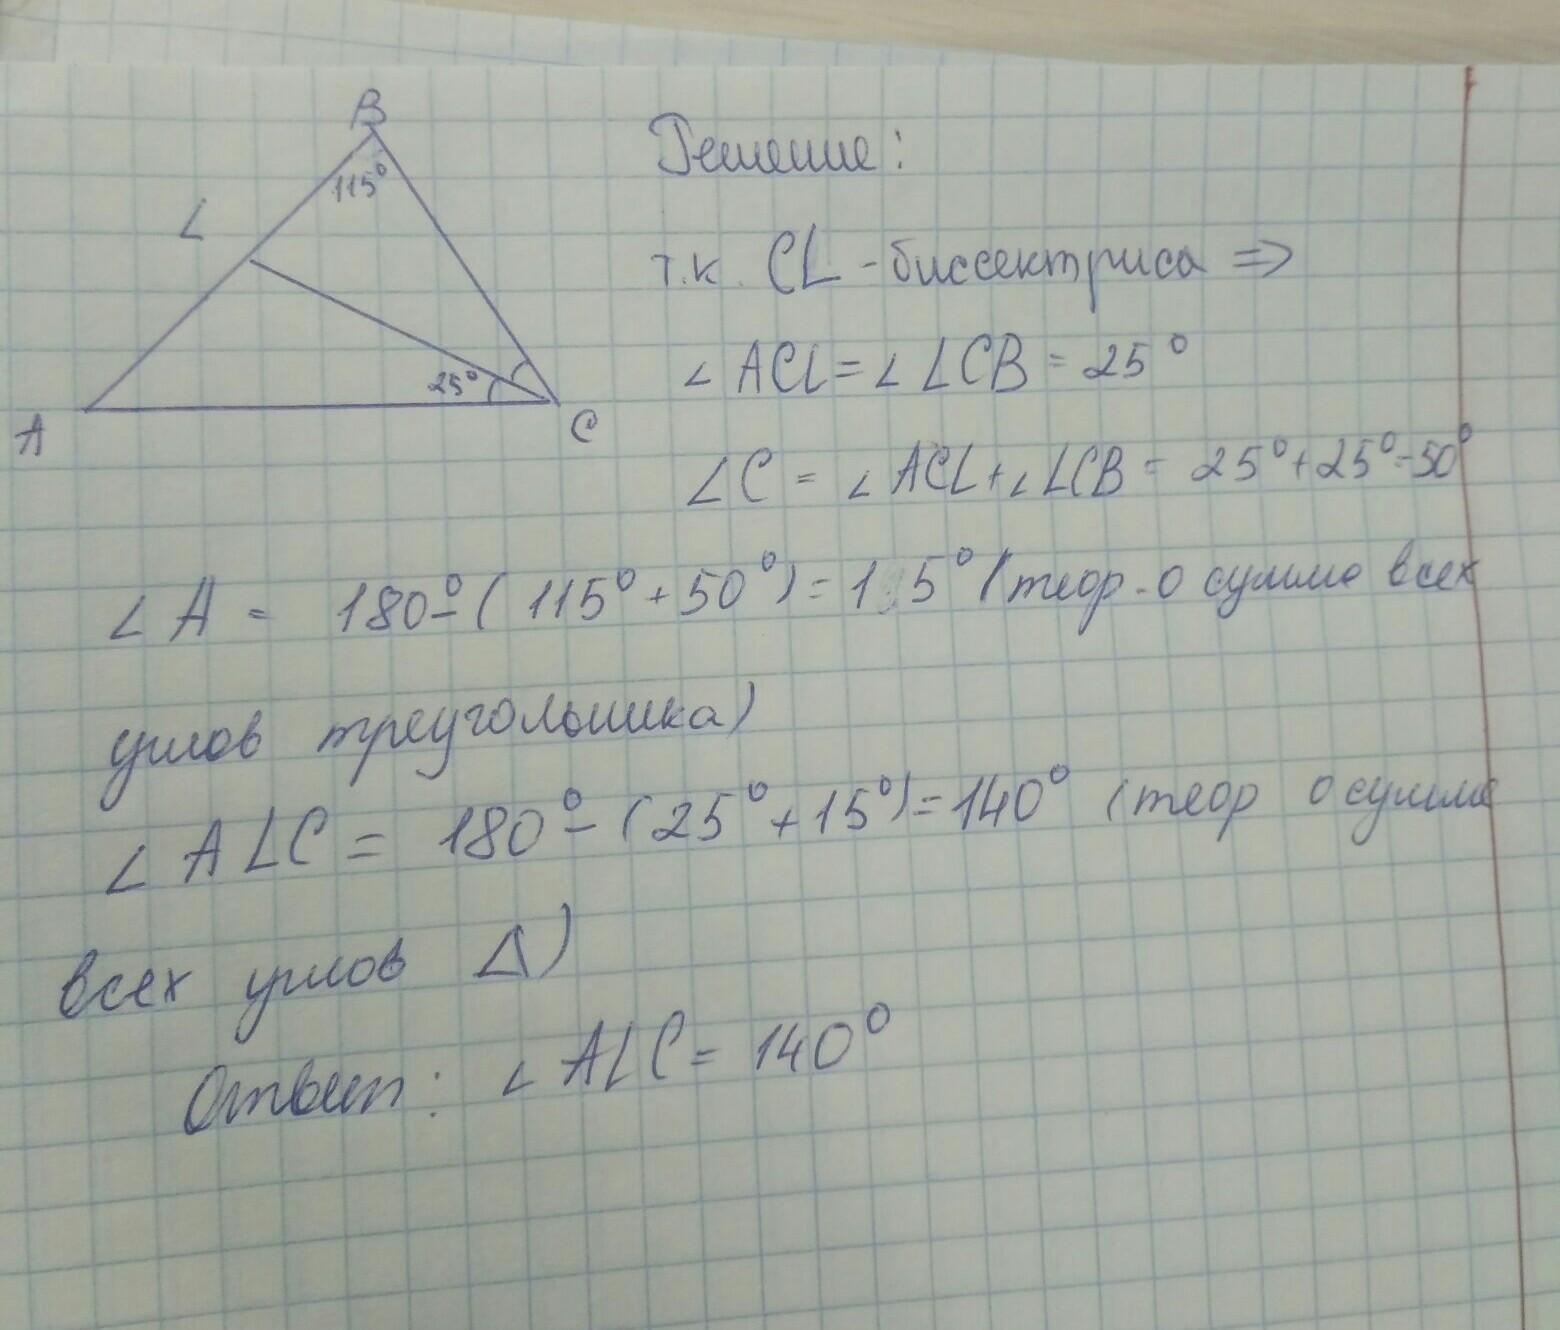 B
115°
L
25°
A
C
Решение:
т.к. CL - биссектриса ⇒
∠ ACL = ∠ LCB = 25°
∠C = ∠ ACL + ∠ LCB = 25° + 25° = 50°
∠ A = 180° - ( 115° + 50° ) = 1 5° (теор. о сумме всех
углов треугольника)
∠ ALC = 180° - (25° + 15°) = 140° (теор о сумме
всех углов Δ)
Ответ: ∠ ALC = 140°